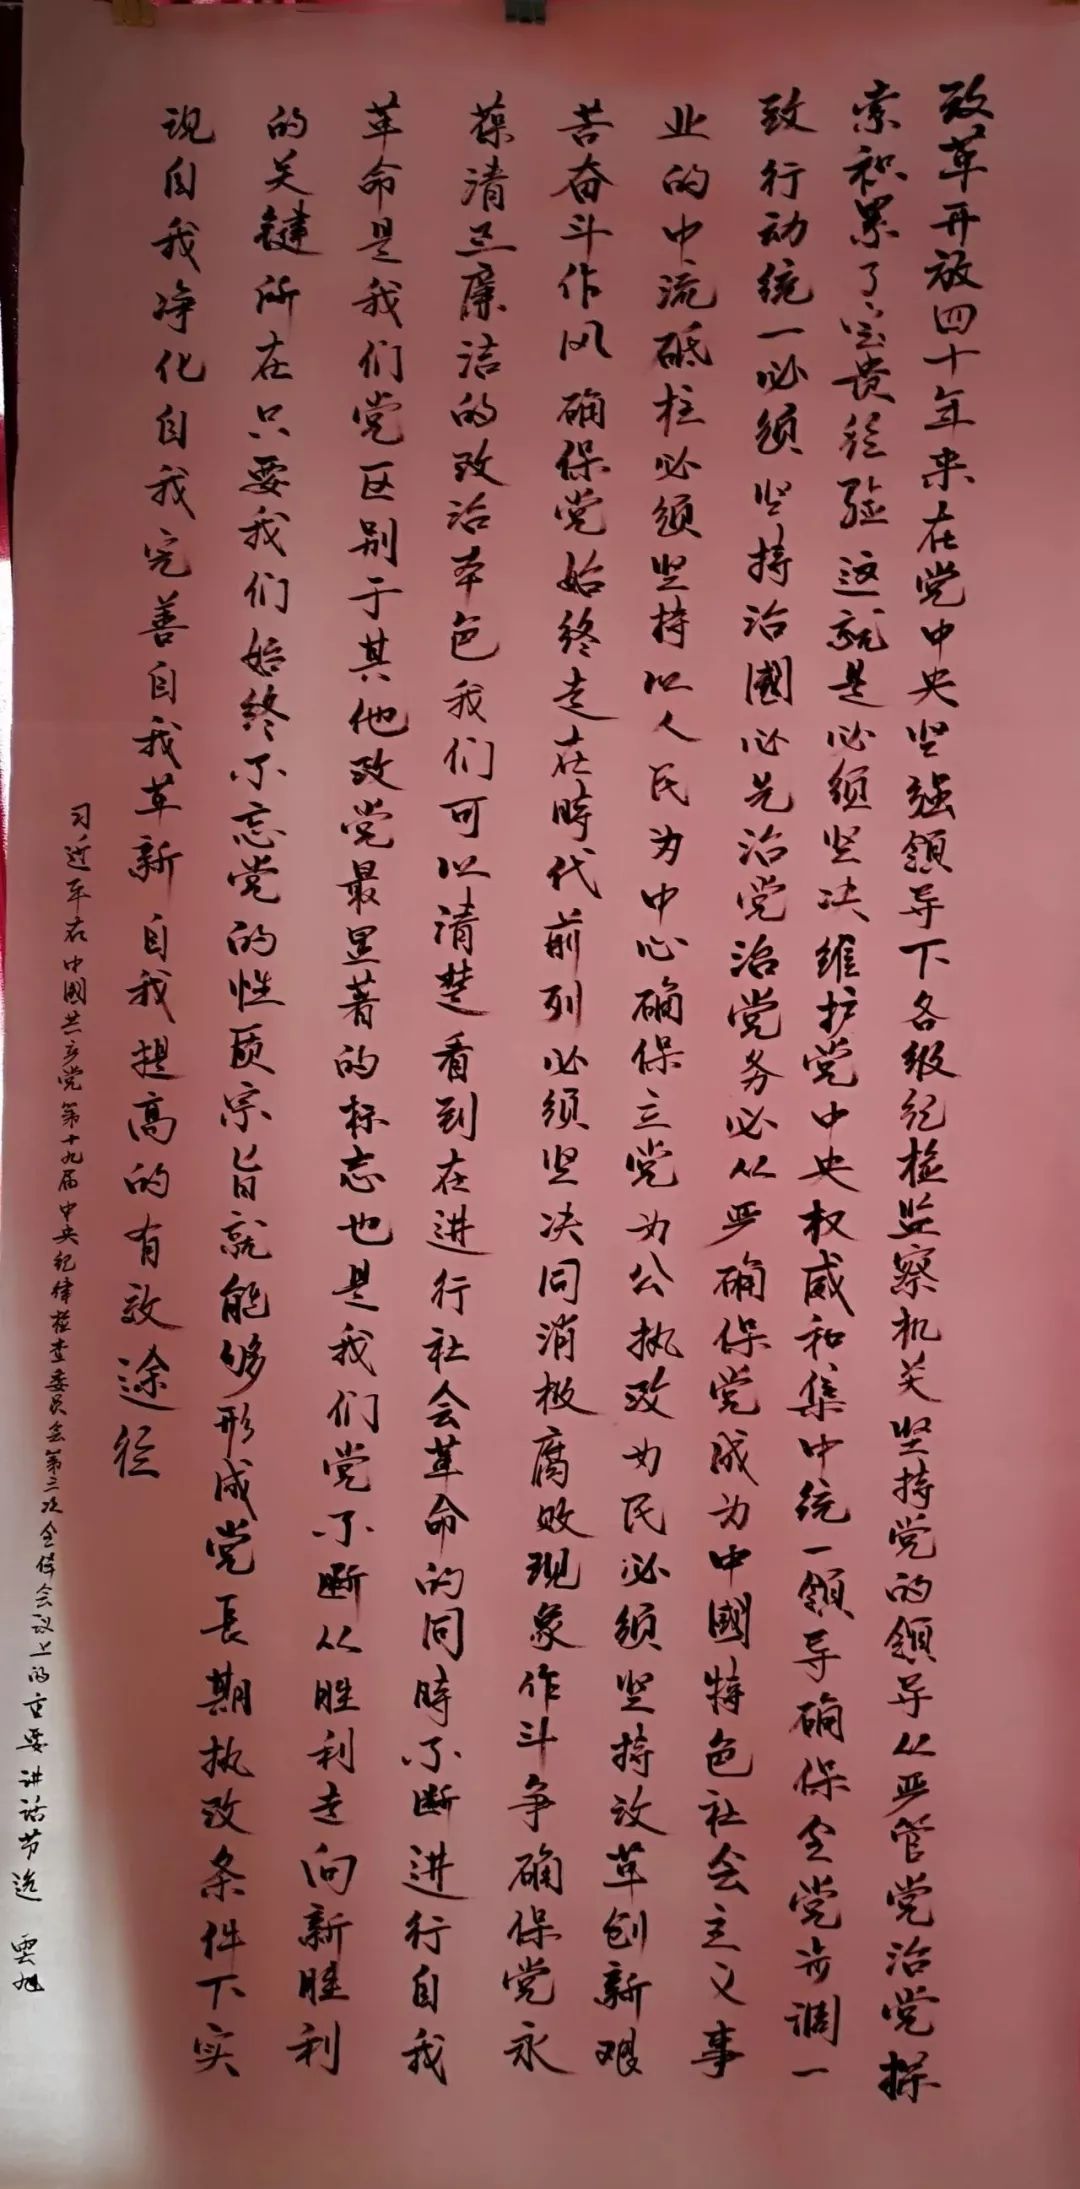 改革开放四十年来在党中央坚强領导下各级纪检监察机关坚持党的領导从严管党治党探
索积累了宝贵经验这就是必须坚决维护党中央权威和集中统一領导确保全党步调一
致行动统一必须坚持治國必先治党治党务必从严确保党成为中國特色社会主义事
业的中流砥柱必须坚持以人民为中心确保立党为公执政为民必须坚持改革创新艰
苦奋斗作风确保党始终走在時代前列必须坚决同消极腐败现象作斗争确保党永
葆清正廉洁的政治本色我们可以清楚看到在进行社会革命的同時不断进行自我
革命是我们党区别于其他政党最显著的标志也是我们党不断从胜利走向新胜利
的关键所在只要我们始终不忘党的性质宗旨就能够形成党長期执政条件下实
现自我净化自我完善自我革新自我提高的有效途径
习近平在中國共产党第十九届中央纪律检查委员会第三次全体会议上的重要讲话节选 雲旭